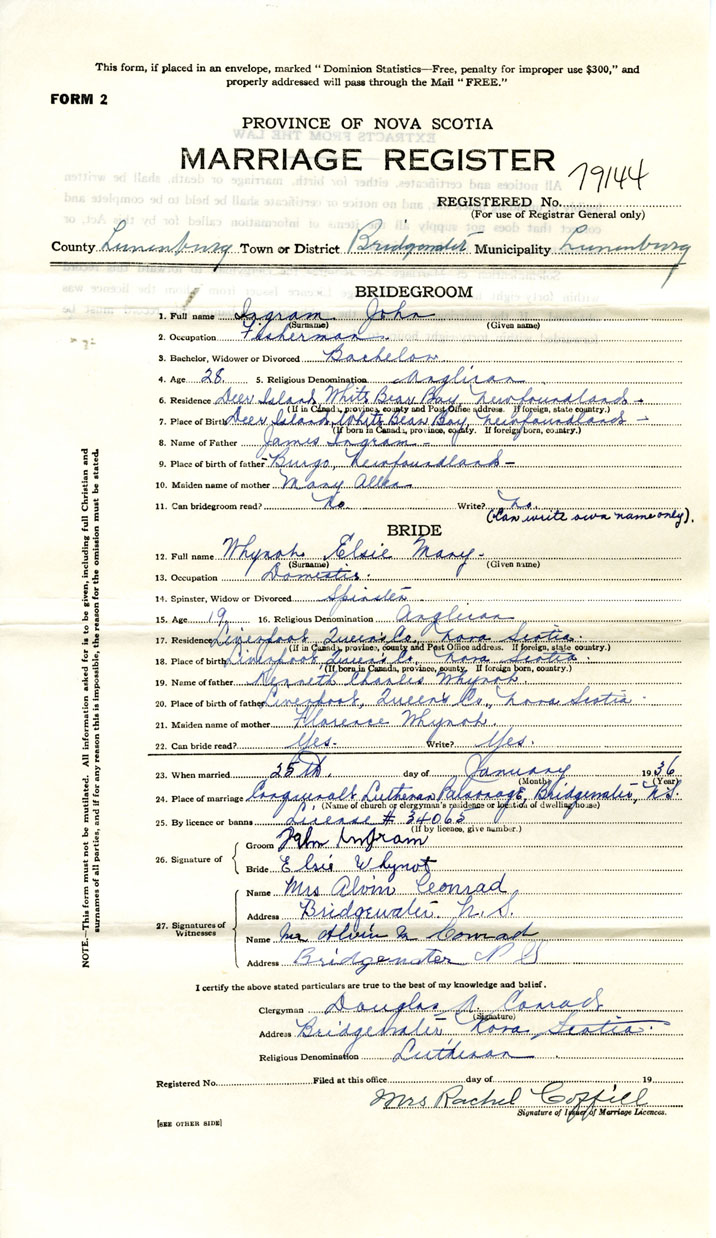 This form, if placed in an envelope, marked "Dominion Statistics—Free, penalty for improper use $300," and
properly addressed will pass through the Mail "FREE."
FORM 2
PROVINCE OF NOVA SCOTIA
MARRIAGE REGISTER
79144
REGISTERED No.
(For use of Registrar General only)
County Lunenburg Town or District Bridgewater Municipality Lunenburg
BRIDEGROOM
1. Full name Ingram John
(Surname) (Given name)
2. Occupation Fisherman
3. Bachelor, Widower or Divorced Bachelor
4. Age 28. 5. Religious Denomination Anglican
6. Residence Deer Island, White Bear Bay, Newfoundland -
(If in Canada, province, county and Post Office address. If foreign, state country.)
7. Place of Birth Deer Island, White Bear Bay, Newfoundland -
(If born in Canada, province, county. If foreign born, country.)
8. Name of Father James Ingram -
9. Place of birth of father Burgo, Newfoundland -
10. Maiden name of mother Mary Allen
11. Can bridegroom read? No. Write? No.
(Can write own name only).
BRIDE
12. Full name Whynot Elsie Mary -
(Surname) (Given name)
13. Occupation Domestic.
14. Spinster, Widow or Divorced Spinster
15. Age 19 16. Religious Denomination Anglican
17. Residence Liverpool, Queen's Co., Nova Scotia.
(If in Canada, province, county and Post Office address. If foreign, state country.)
18. Place of birth Liverpool, Queen's Co., Nova Scotia.
(If born in Canada, province, county. If foreign born, country.)
19. Name of father Kenneth Charles Whynot
20. Place of birth of father Liverpool, Queen's Co., Nova Scotia.
21. Maiden name of mother Florence Whynot.
22. Can bride read? Yes. Write? Yes.
23. When married 25th. day of January 1936
(Month) (Year)
24. Place of marriage Lutheran Parsonage, Bridgewater, N.S.
(Name of church or clergyman's residence or location of dwelling house)
25. By licence or banns License # 34065
(If by licence, give number.)
26. Signature of
Groom John Ingram
Bride Elsie Whynot
27. Signatures of Witnesses
Name Mrs Alvin Conrad
Address Bridgewater. N.S.
Name Mr Alvin M Conrad
Address Bridgewater N S
I certify the above stated particulars are true to the best of my knowledge and belief.
Clergyman Douglas A. Conrad
(Signature)
Address Bridgewater Nova Scotia.
Religious Denomination Lutheran
Registered No. Filed at this office day of 19
Mrs Rachel Coffill
Signature of Issuer of Marriage Licences.
[SEE OTHER SIDE]
NOTE.—This form must not be mutilated. All information asked for is to be given, including full Christian and
surnames of all parties, and if for any reason this is impossible, the reason for the omission must be stated.